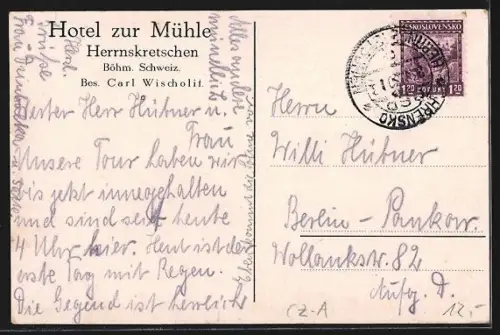 Hotel zur Mühle
Herrnskretschen
Böhm. Schweiz.
Bes. Carl Wischolit.
Werter Herr Hübner u.
Frau
Unsere Tour haben wir
bis jetzt innegehalten
und sind seit heute
4 Uhr hier. Heut ist der
erste Tag mit Regen.
Die Gegend ist herrlich
Alles weitere
mündlich
Herzl.
Grüße
Frau
ČESKOSLOVENSKO
1.20 KORUNY 1.20
HŘENSKO
Herrn
Willi Hübner
Berlin-Pankow.
Wollankstr. 82
Aufg. D.
CZ-A
12,-